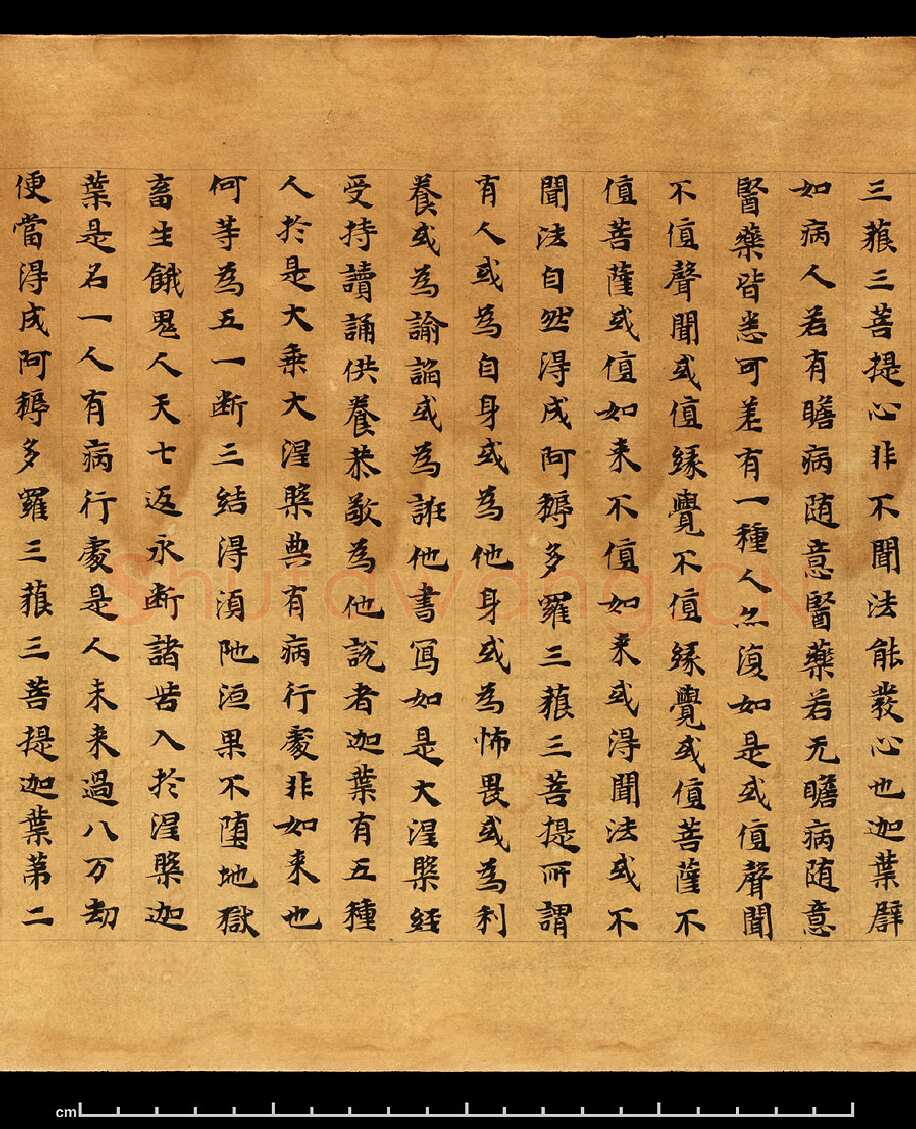 三藐三菩提心非不聞法能發心也迦葉辟
如病人若有瞻病随意醫藥若无瞻病随意
醫藥皆悉可差有一種人亦復如是或值聲聞
不值聲聞或值緣覺不值緣覺或值菩薩不
值菩薩或值如来不值如来或得聞法或不
聞法自然得成阿耨多羅三藐三菩提所謂
有人或為自身或為他身或為怖畏或為利
養或為諭諂或為誑他書寫如是大涅槃経
受持讀誦供養恭敬為他說者迦葉有五種
人於是大乘大涅槃典有病行處非如来也
何等為五一断三結得湏陁洹果不墮地獄
畜生餓鬼人天七返永断諸苦入於涅槃迦
葉是名一人有病行處是人未来過八万劫
便當得成阿耨多羅三藐三菩提迦葉苐二
Shutawang.CN
cm